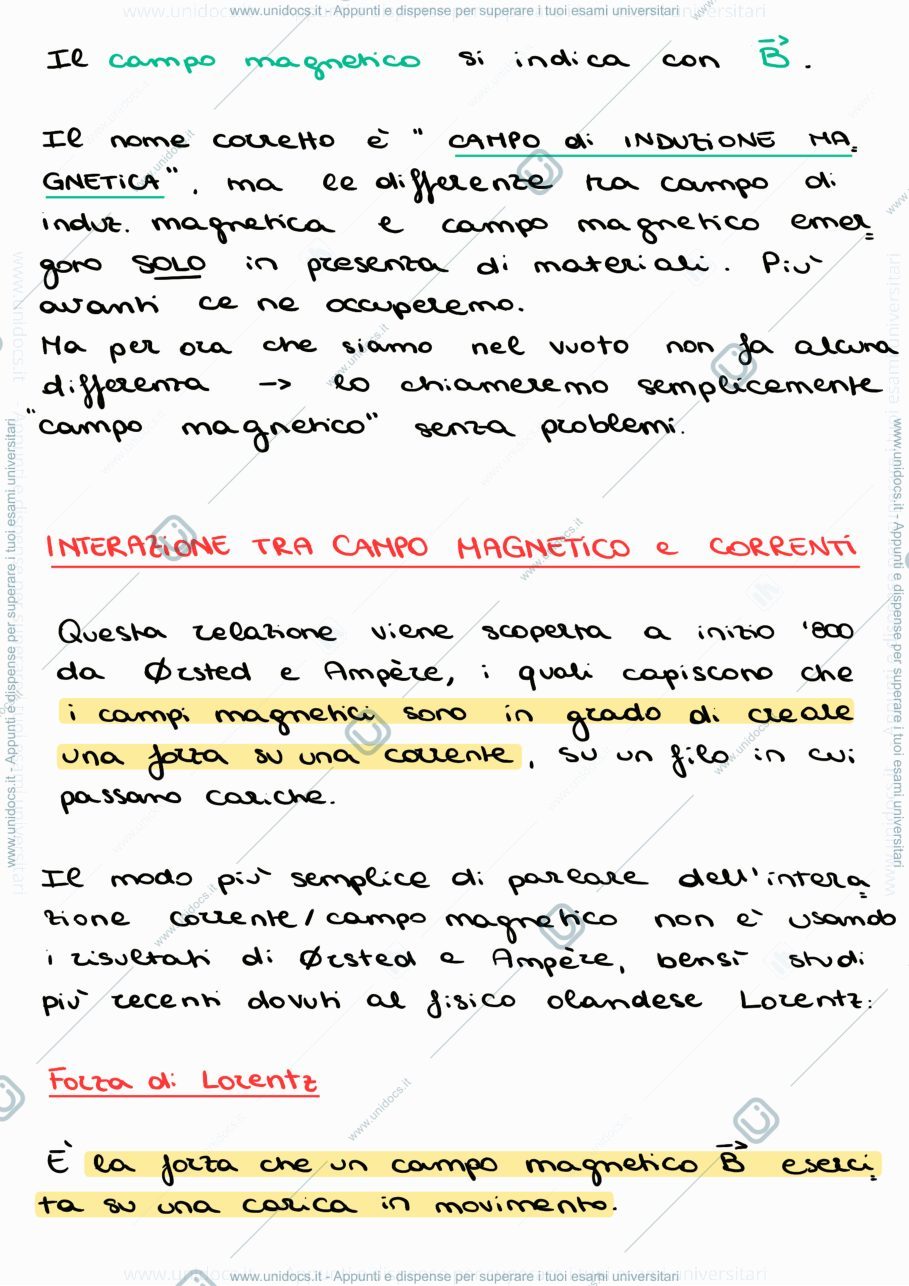 www.unidocs.it - Appunti e dispense per superare i tuoi esami universitari
Il campo magnetico si indica con B.
Il nome corretto è " CAMPO di INDUZIONE MA=
GNETICA", ma le differenze tra campo di
induz. magnetica e campo magnetico emer=
gono SOLO in presenza di materiali. Più
avanti ce ne occuperemo.
Ma per ora che siamo nel vuoto non fa alcuna
differenza -> lo chiameremo semplicemente
"campo magnetico" senza problemi.
INTERAZIONE TRA CAMPO MAGNETICO e CORRENTI
Questa relazione viene scoperta a inizio '800
da Ørsted e Ampère, i quali capiscono che
i campi magnetici sono in grado di creare
una forza su una corrente, su un filo in cui
passano cariche.
Il modo più semplice di parlare dell'intera=
zione corrente/campo magnetico non è usando
i risultati di Ørsted e Ampère, bensì studi
più recenti dovuti al fisico olandese Lorentz:
Forza di Lorentz
È la forza che un campo magnetico B eserci=
ta su una carica in movimento.
www.unidocs.it - Appunti e dispense per superare i tuoi esami universitari
www.unidocs.it - Appunti e dispense per superare i tuoi esami universitari
www.unidocs.it - Appunti e dispense per superare i tuoi esami universitari